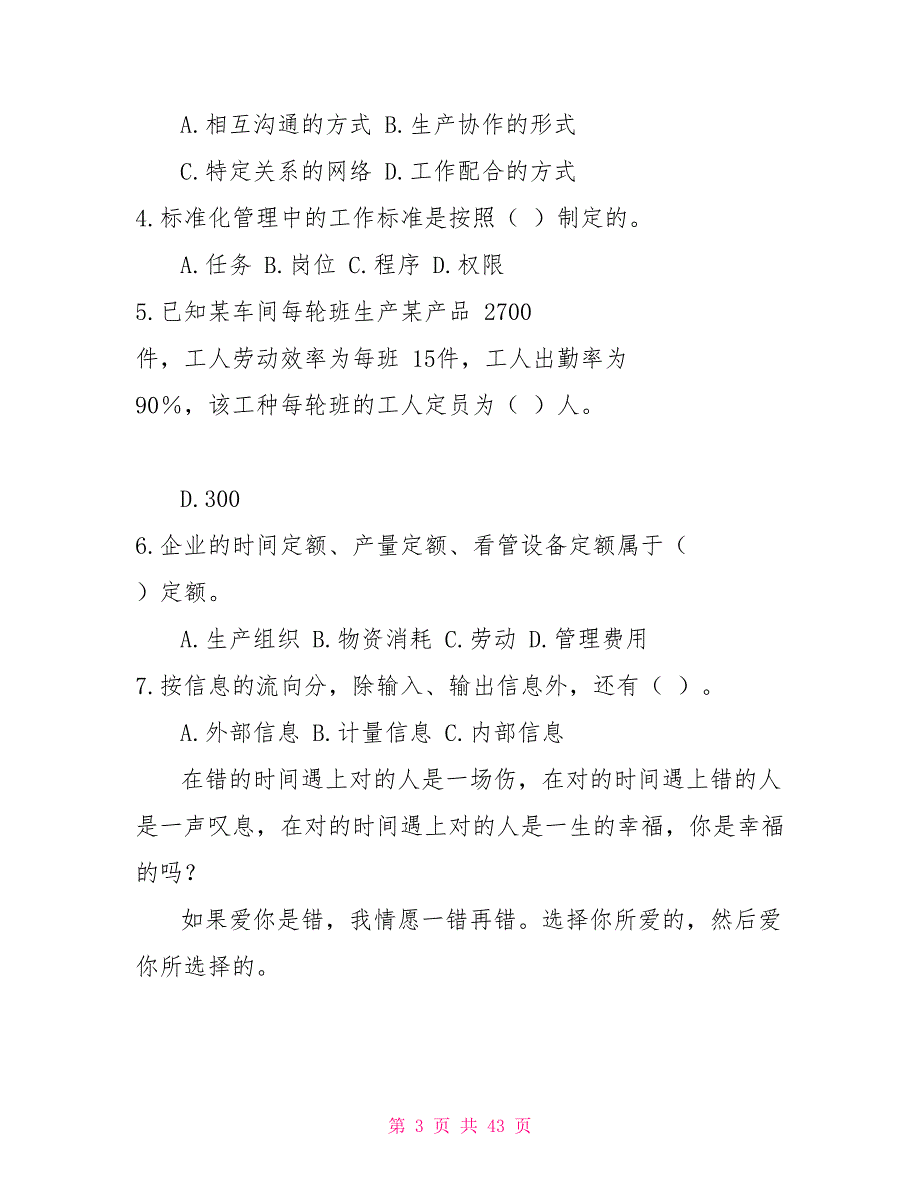 A.相互沟通的方式 B.生产协作的形式
C.特定关系的网络 D.工作配合的方式
4.标准化管理中的工作标准是按照（ ）制定的。
A.任务 B.岗位 C.程序 D.权限
5.已知某车间每轮班生产某产品 2700
件，工人劳动效率为每班 15件，工人出勤率为
90％，该工种每轮班的工人定员为（ ）人。
D.300
6.企业的时间定额、产量定额、看管设备定额属于（
）定额。
A.生产组织 B.物资消耗 C.劳动 D.管理费用
7.按信息的流向分，除输入、输出信息外，还有（ ）。
A.外部信息 B.计量信息 C.内部信息
在错的时间遇上对的人是一场伤，在对的时间遇上错的人
是一声叹息，在对的时间遇上对的人是一生的幸福，你是幸福
的吗？
如果爱你是错，我情愿一错再错。选择你所爱的，然后爱
你所选择的。
第 3 页 共 43 页